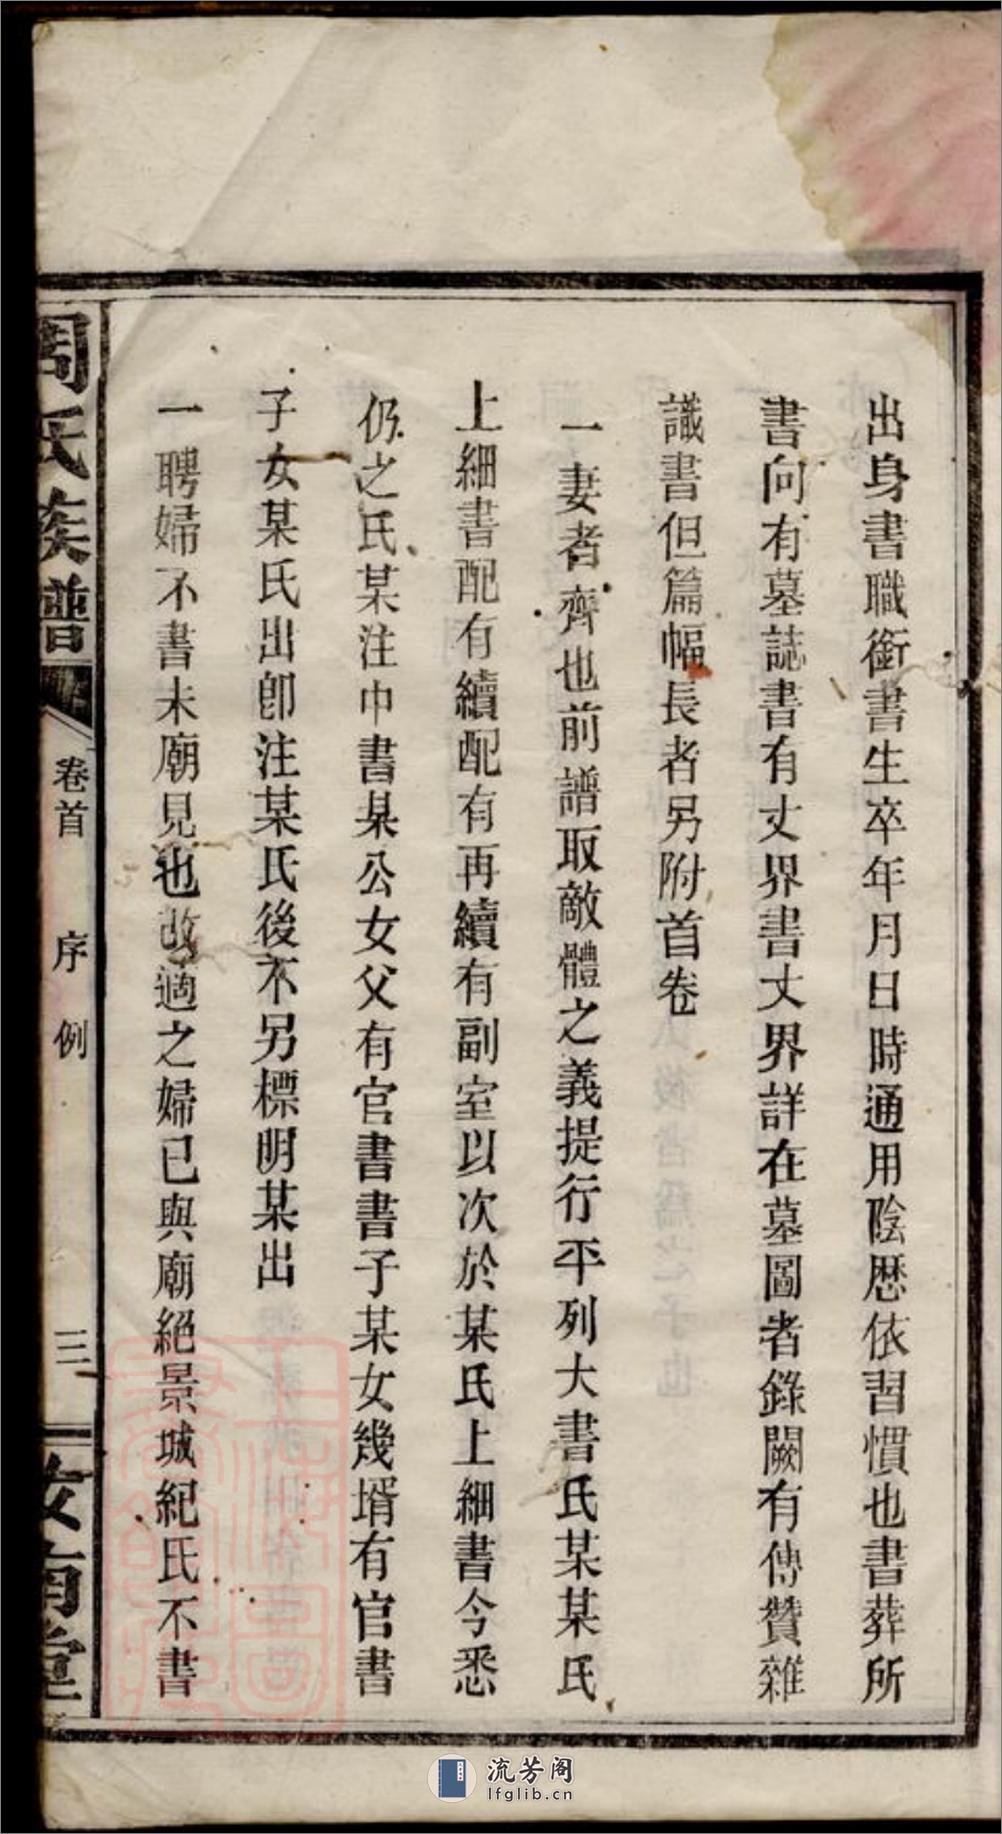 出身書職銜書生卒年月日時通用陰歷依習慣也書葬所
書向有墓誌書有丈界書丈界詳在墓圖者錄闕有傳贊雜
識書但篇幅長者另附首卷
一妻者齊也前譜取敵體之義提行平列大書氏某某氏
上細書配有續配有再續有副室以次於某氏上細書今悉
仍之氏某注巾書某公女父有官書書子某女幾壻有官書
子女某氏出卽注某氏後不另標明某出
一聘婦不書未廟見也改適之婦已與廟絕景城紀氏不書
周氏族譜
卷首 序例
三
汝南堂
流芳阁
lfglib.cn